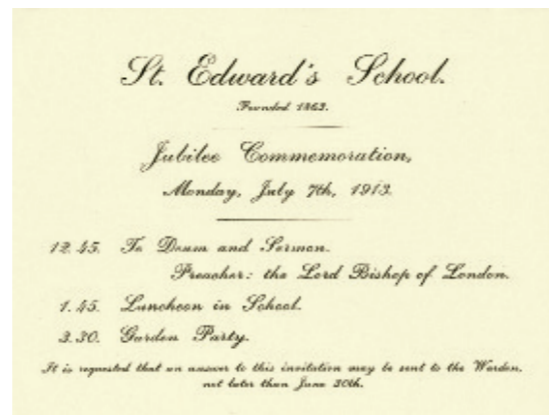 St. Edward's School.
Founded 1863.
Jubilee Commemoration,
Monday, July 7th, 1913.
12.45. Te Deum and Sermon.
Preacher: the Lord Bishop of London.
1.45. Luncheon in School.
3.30. Garden Party.
It is requested that an answer to this invitation may be sent to the Warden,
not later than June 30th.